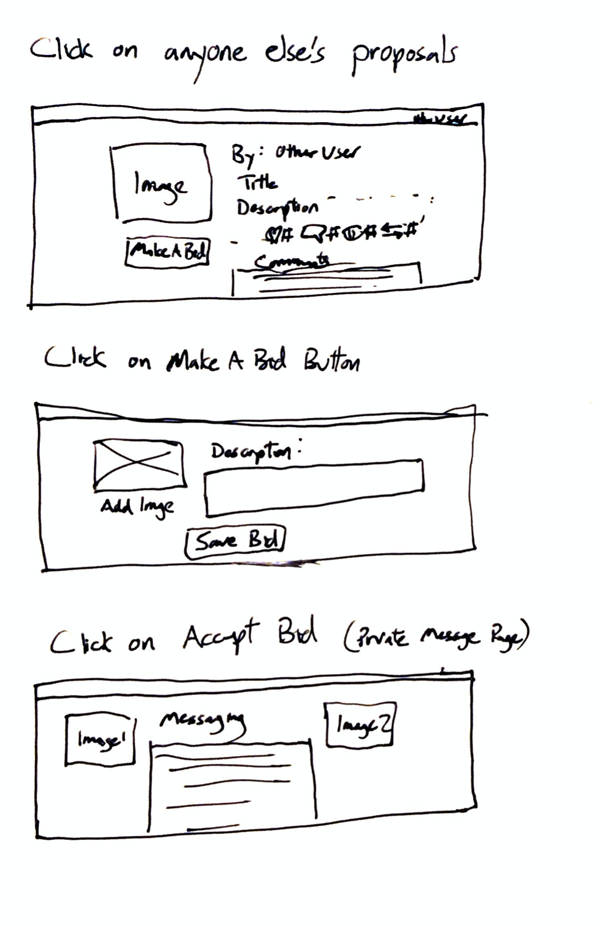 Click on anyone else's proposals
other user
Image
By: Other User
Title
Description
Make A Bid
Comments
Click on Make A Bid Button
Description:
Add Image
Save Bid
Click on Accept Bid (Private Message Page)
Image1
Messaging
Image2